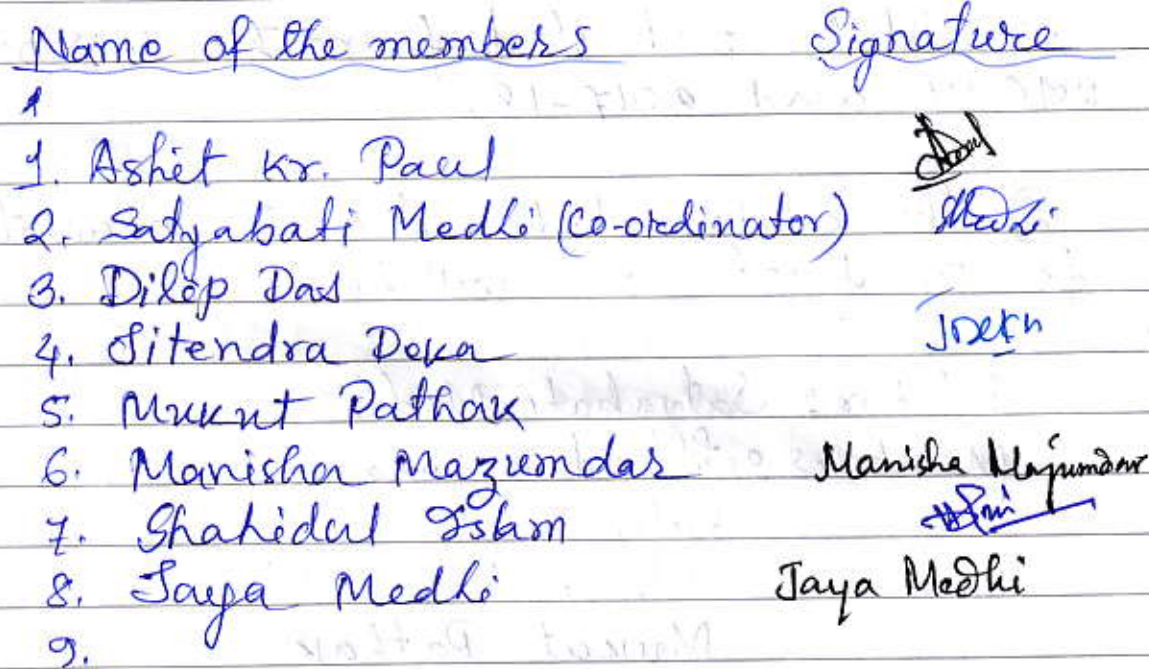 Name of the members Signature
1. Ashit Kr. Paul
2. Satyabati Medhi (Co-ordinator) SMedhi
3. Dilip Das
4. Jitendra Deka
5. Mukut Pathak
6. Manisha Mazumdar Manisha Majumdar
7. Shahidul Islam
8. Jaya Medhi Jaya Medhi
9.